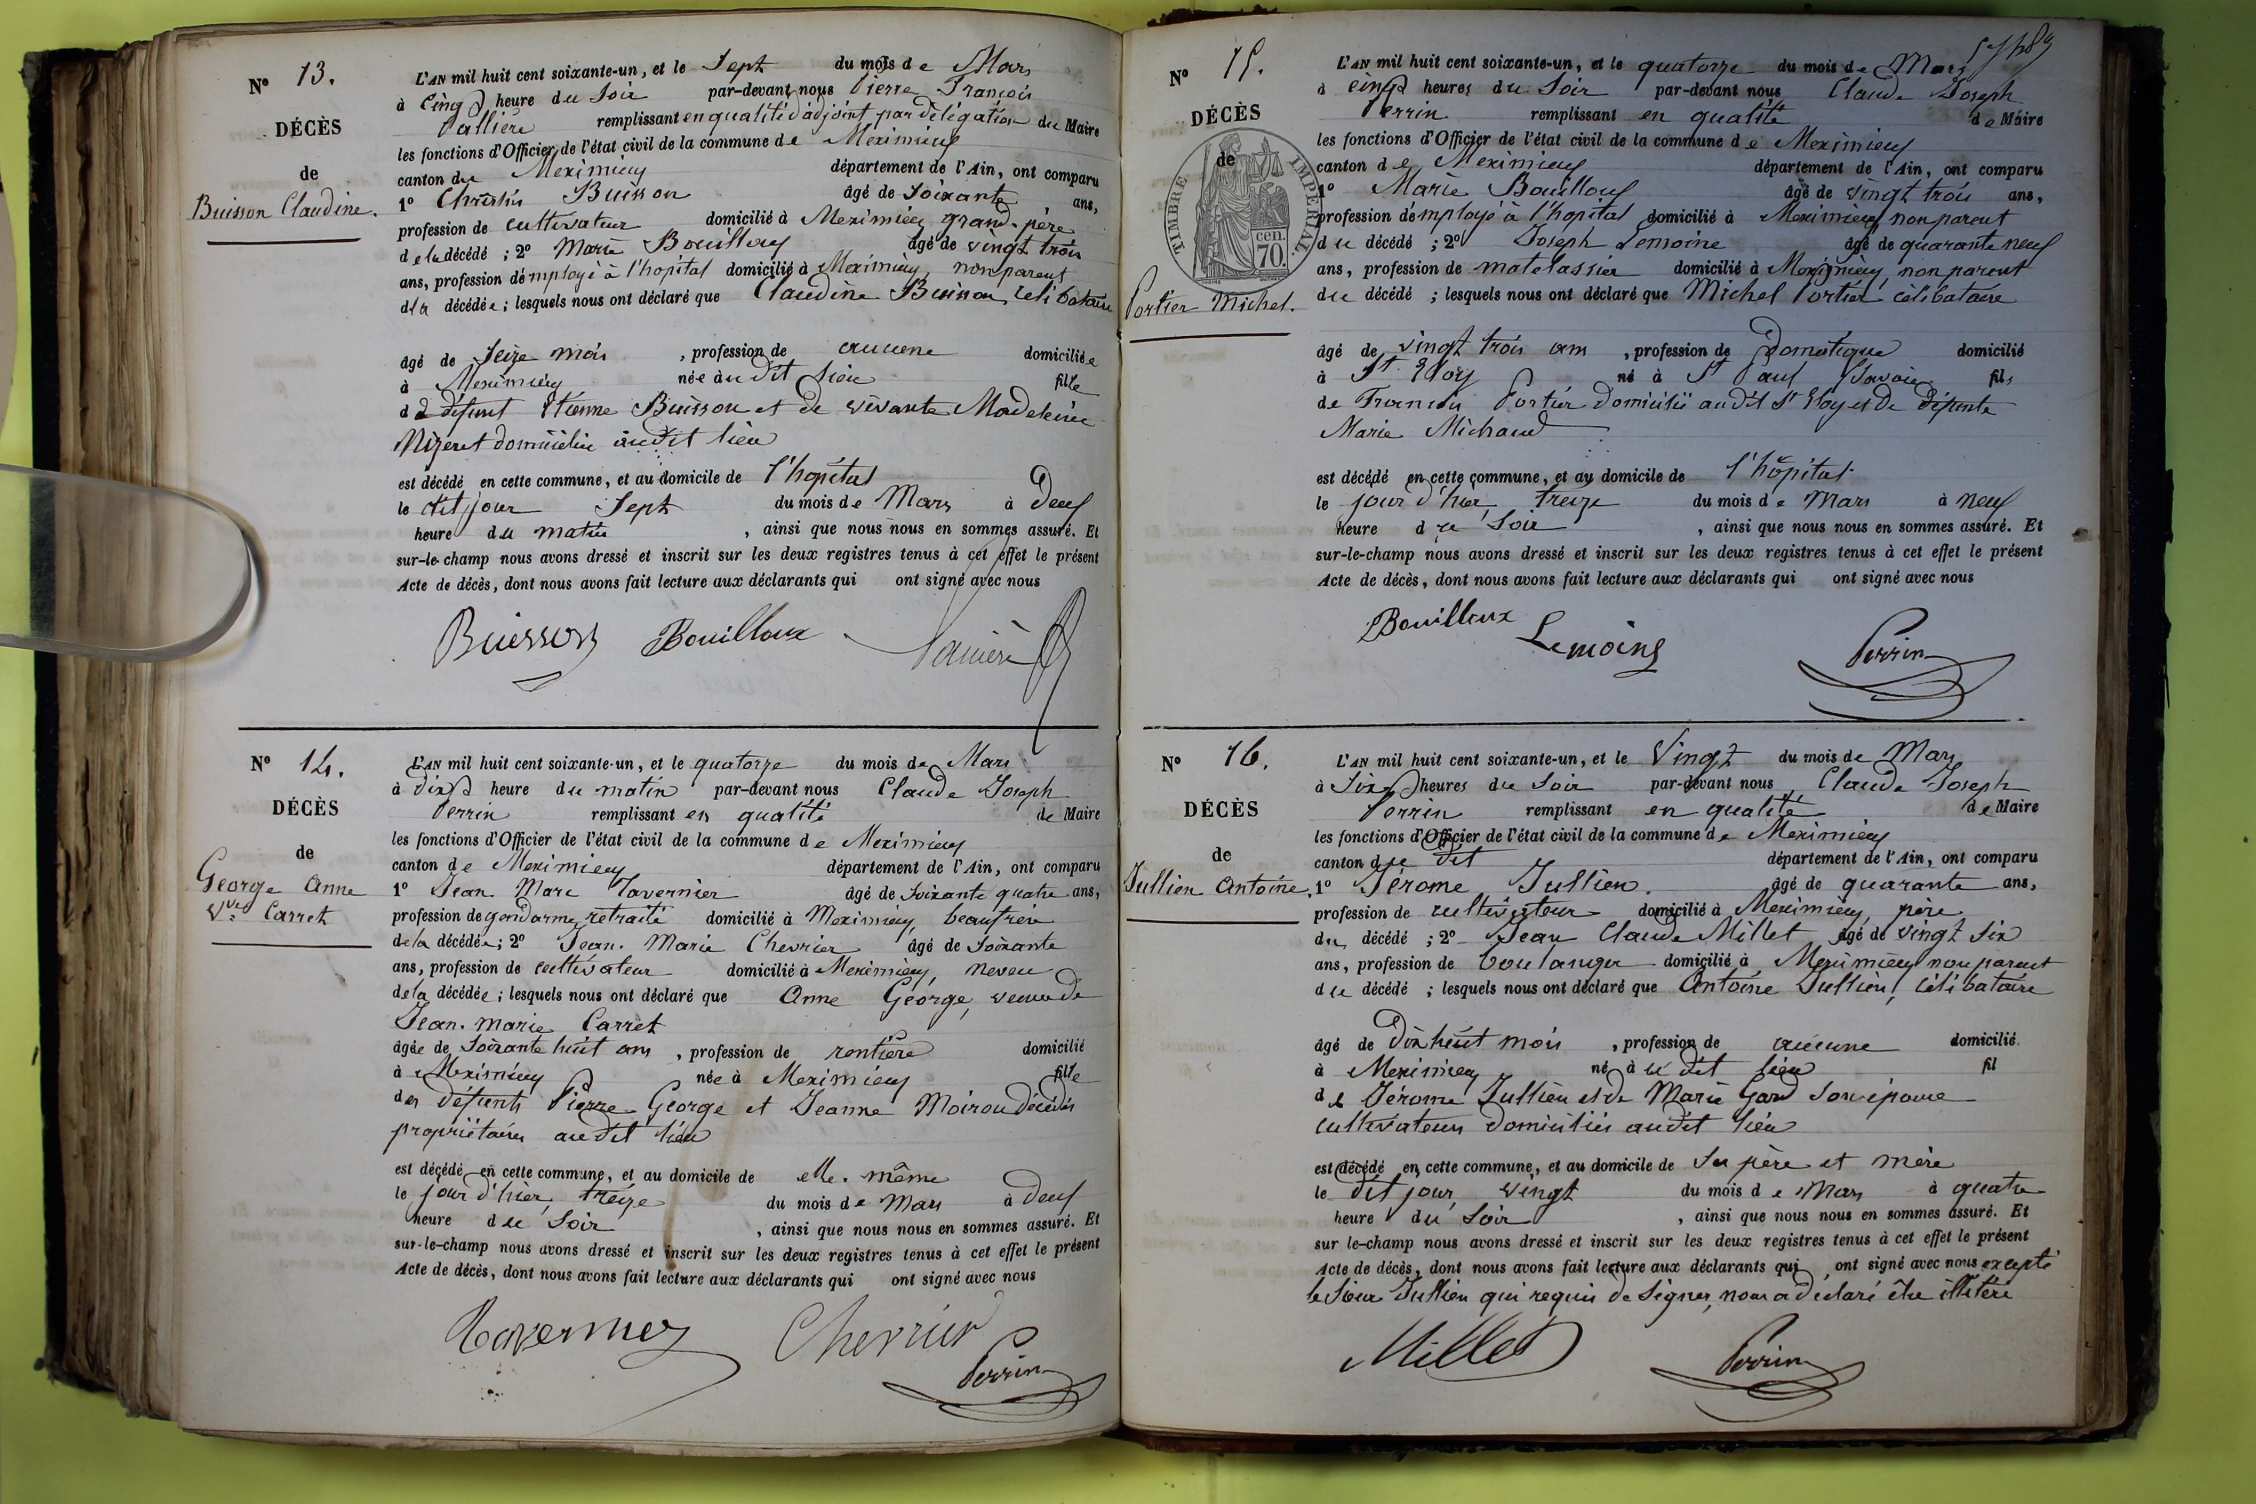 N° 13.
DÉCÈS
de
Buisson Claudine.
L'AN mil huit cent soixante-un, et le Sept du mois de Mars
à Cinq heure du Soir par-devant nous Pierre François
Pallière remplissant en qualité d'adjoint par délégation du Maire
les fonctions d'Officier de l'état civil de la commune de Meximieux
canton de Meximieux département de l'Ain, ont comparu
1° Christin Buisson âgé de Soixante ans,
profession de cultivateur domicilié à Meximieux grand-père
de la décédé ; 2° Marie Bouilloux âgé de vingt trois
ans, profession d'employé à l'hopital domicilié à Meximieux, non parent
d la décédée ; lesquels nous ont déclaré que Claudine Buisson, célibataire
âgé de Seize mois , profession de aucune domiciliée
à Meximieux née à u dit lieu fille
d e défunt Etienne Buisson et de vivante Madeleine
Mizeret domiciliée audit lieu
est décédé en cette commune, et au domicile de l'hopital
le dit jour Sept du mois de Mars à Deux
heure du matin , ainsi que nous nous en sommes assuré. Et
sur-le-champ nous avons dressé et inscrit sur les deux registres tenus à cet effet le présent
Acte de décès, dont nous avons fait lecture aux déclarants qui ont signé avec nous
Buisson Bouilloux Pallière
N° 14.
DÉCÈS
de
George Anne
Vve Carret
L'AN mil huit cent soixante-un, et le quatorze du mois de Mars
à dix heure du matin par-devant nous Claude Joseph
Perrin remplissant en qualité de Maire
les fonctions d'Officier de l'état civil de la commune de Meximieux
canton de Meximieux département de l'Ain, ont comparu
1° Jean Marc Tavernier âgé de Soixante quatre ans,
profession de gendarme retraité domicilié à Meximieux, beaufrère
de la décédée ; 2° Jean-Marie Chevrier âgé de Soixante
ans, profession de cultivateur domicilié à Meximieux, neveu
de la décédée ; lesquels nous ont déclaré que Anne George, veuve de
Jean-marie Carret
âgée de Soixante huit ans , profession de rentière domicilié
à Meximieux née à Meximieux fille
des défunts Pierre George et Jeanne Moirou décédés
propriétaires audit lieu
est décédé en cette commune, et au domicile de elle-même
le jour d'hier, treize du mois de Mars à Deux
heure du Soir , ainsi que nous nous en sommes assuré. Et
sur-le-champ nous avons dressé et inscrit sur les deux registres tenus à cet effet le présent
Acte de décès, dont nous avons fait lecture aux déclarants qui ont signé avec nous
Tavernier Chevrier
Perrin
N° 15.
DÉCÈS
de
TIMBRE IMPÉRIAL.
cen.
70.
Portier Michel.
L'AN mil huit cent soixante-un, et le quatorze du mois de Mars
à cinq heures du Soir par-devant nous Claude Joseph
Perrin remplissant en qualité de Maire
les fonctions d'Officier de l'état civil de la commune de Meximieux
canton de Meximieux département de l'Ain, ont comparu
1° Marie Bouilloux âgé de vingt trois ans,
profession d'employé à l'hopital domicilié à Meximieux, non parent
du décédé ; 2° Joseph Lemoine âgé de quarante neuf
ans, profession de matelassier domicilié à Meximieux, non parent
du décédé ; lesquels nous ont déclaré que Michel Portier, célibataire
âgé de vingt trois ans , profession de Domestique domicilié
à St Eloy né à St Paul (Savoie fils
de François Portier domicilié audit St Eloy et de défunte
Marie Michaud
est décédé en cette commune, et au domicile de l'hôpital
le jour d'hier, treize du mois de Mars à neuf
heure du Soir , ainsi que nous nous en sommes assuré. Et
sur-le-champ nous avons dressé et inscrit sur les deux registres tenus à cet effet le présent
Acte de décès, dont nous avons fait lecture aux déclarants qui ont signé avec nous
Bouilloux
Lemoine Perrin
N° 16.
DÉCÈS
de
Jullien Antoine.
L'AN mil huit cent soixante-un, et le Vingt du mois de Mars
à Six heures du Soir par-devant nous Claude Joseph
Perrin remplissant en qualité de Maire
les fonctions d'Officier de l'état civil de la commune de Meximieux
canton du dit département de l'Ain, ont comparu
1° Jérome Jullien. âgé de quarante ans,
profession de cultivateur domicilié à Meximieux, père
du décédé ; 2° Jean Claude Millet âgé de vingt Six
ans, profession de boulanger domicilié à Meximieux non parent
du décédé ; lesquels nous ont déclaré que Antoine Jullien, célibataire
âgé de Dix huit mois , profession de aucune domicilié
à Meximieux né à u dit lieu fil
de Jérome Jullien et de Marie Gard son épouse
cultivateurs domiciliés audit lieu
est décédé en cette commune, et au domicile de Ses père et mère
le dit jour, vingt du mois de Mars à quatre
heure du Soir , ainsi que nous nous en sommes assuré. Et
sur le-champ nous avons dressé et inscrit sur les deux registres tenus à cet effet le présent
Acte de décès, dont nous avons fait lecture aux déclarants qui ont signé avec nous excepté
le Sieur Jullien qui requis de Signer, nous a déclaré être illétéré
Millet Perrin